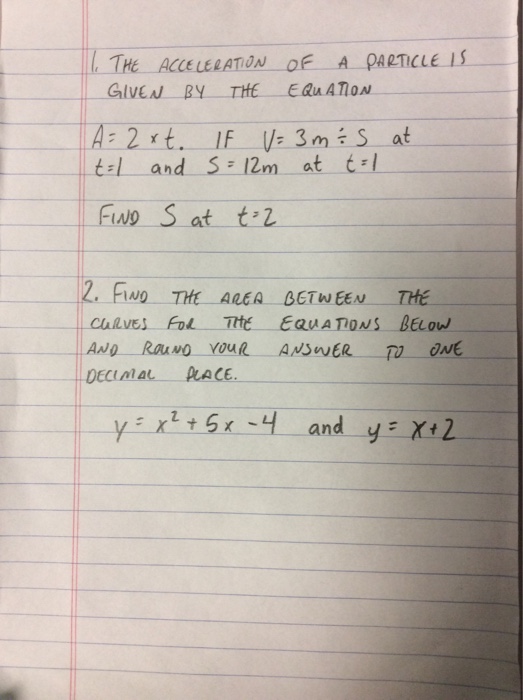 1. THE ACCELERATION OF A PARTICLE IS
GIVEN BY THE EQUATION
A = 2 × t. IF V = 3m ÷ S at
t=1 and S = 12m at t=1
FIND S at t=2
2. FIND THE AREA BETWEEN THE
CURVES FOR THE EQUATIONS BELOW
AND ROUND YOUR ANSWER TO ONE
DECIMAL PLACE.
y = x² + 5x - 4 and y = x+2